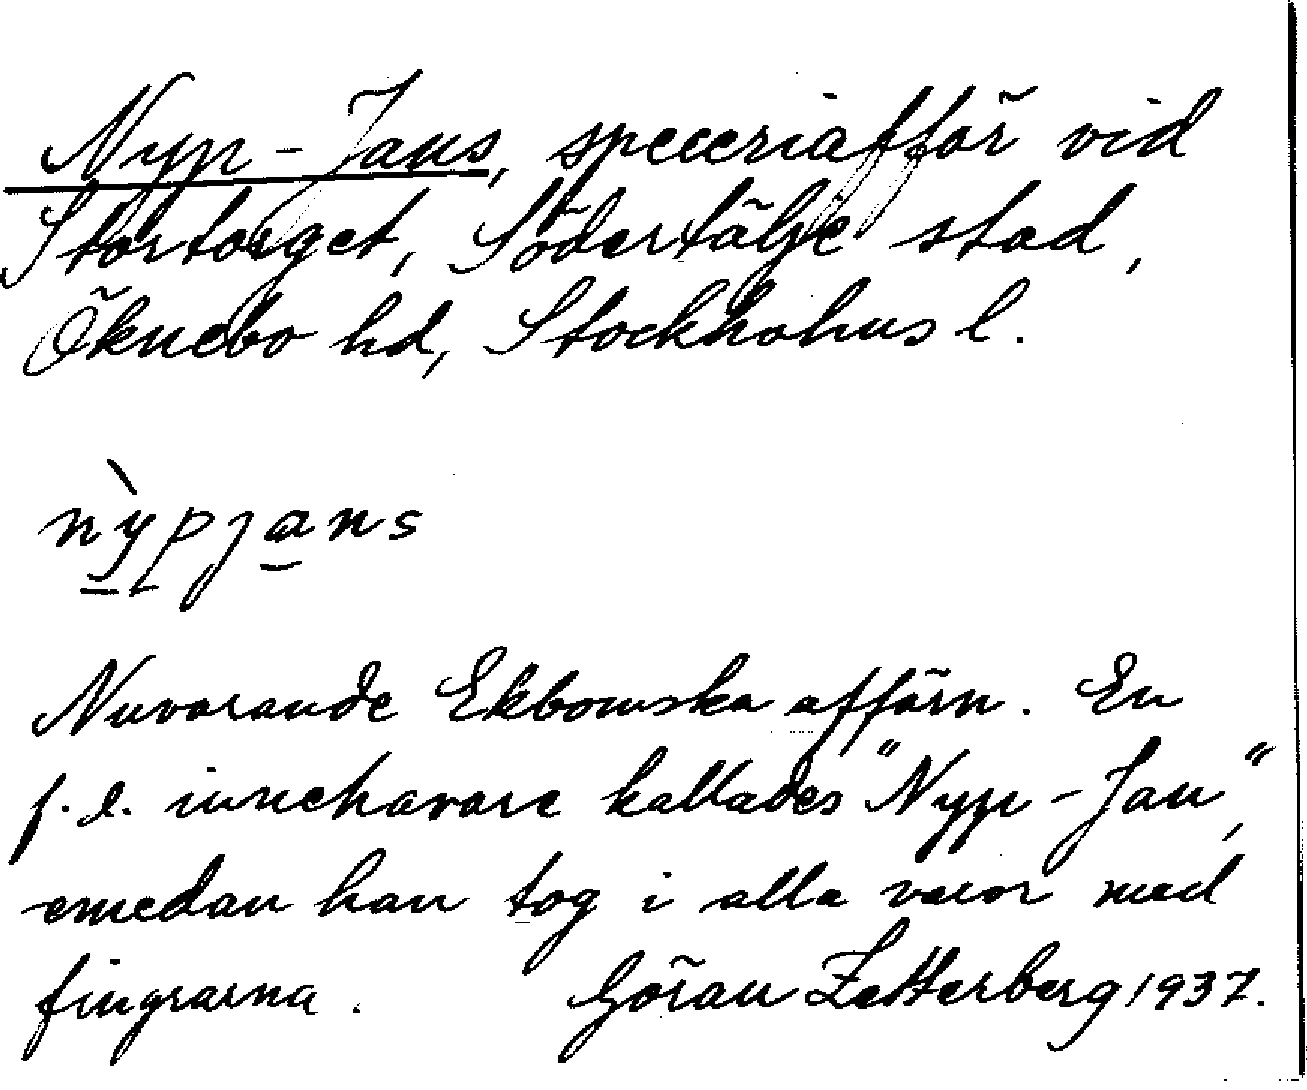 Nyp-Jans, specceriaffär vid
Stortorget, Södertälje stad,
Öknebo hd, Stockholms l.
nỳpjans
Nuvarande Ekbomska affärn. En
f.d. innehavare kallades "Nyp-Jan",
emedan han tog i alla varor med
fingrarna. Göran Zetterberg 1937.